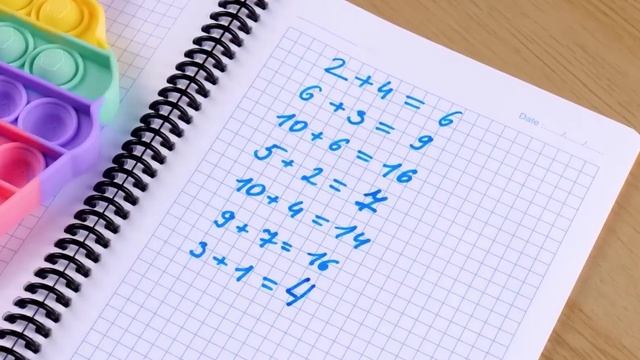 Date
2+4= 6
6+3= 9
10+6=16
5+2= 7
10+4=14
9+7=16
3+1=4